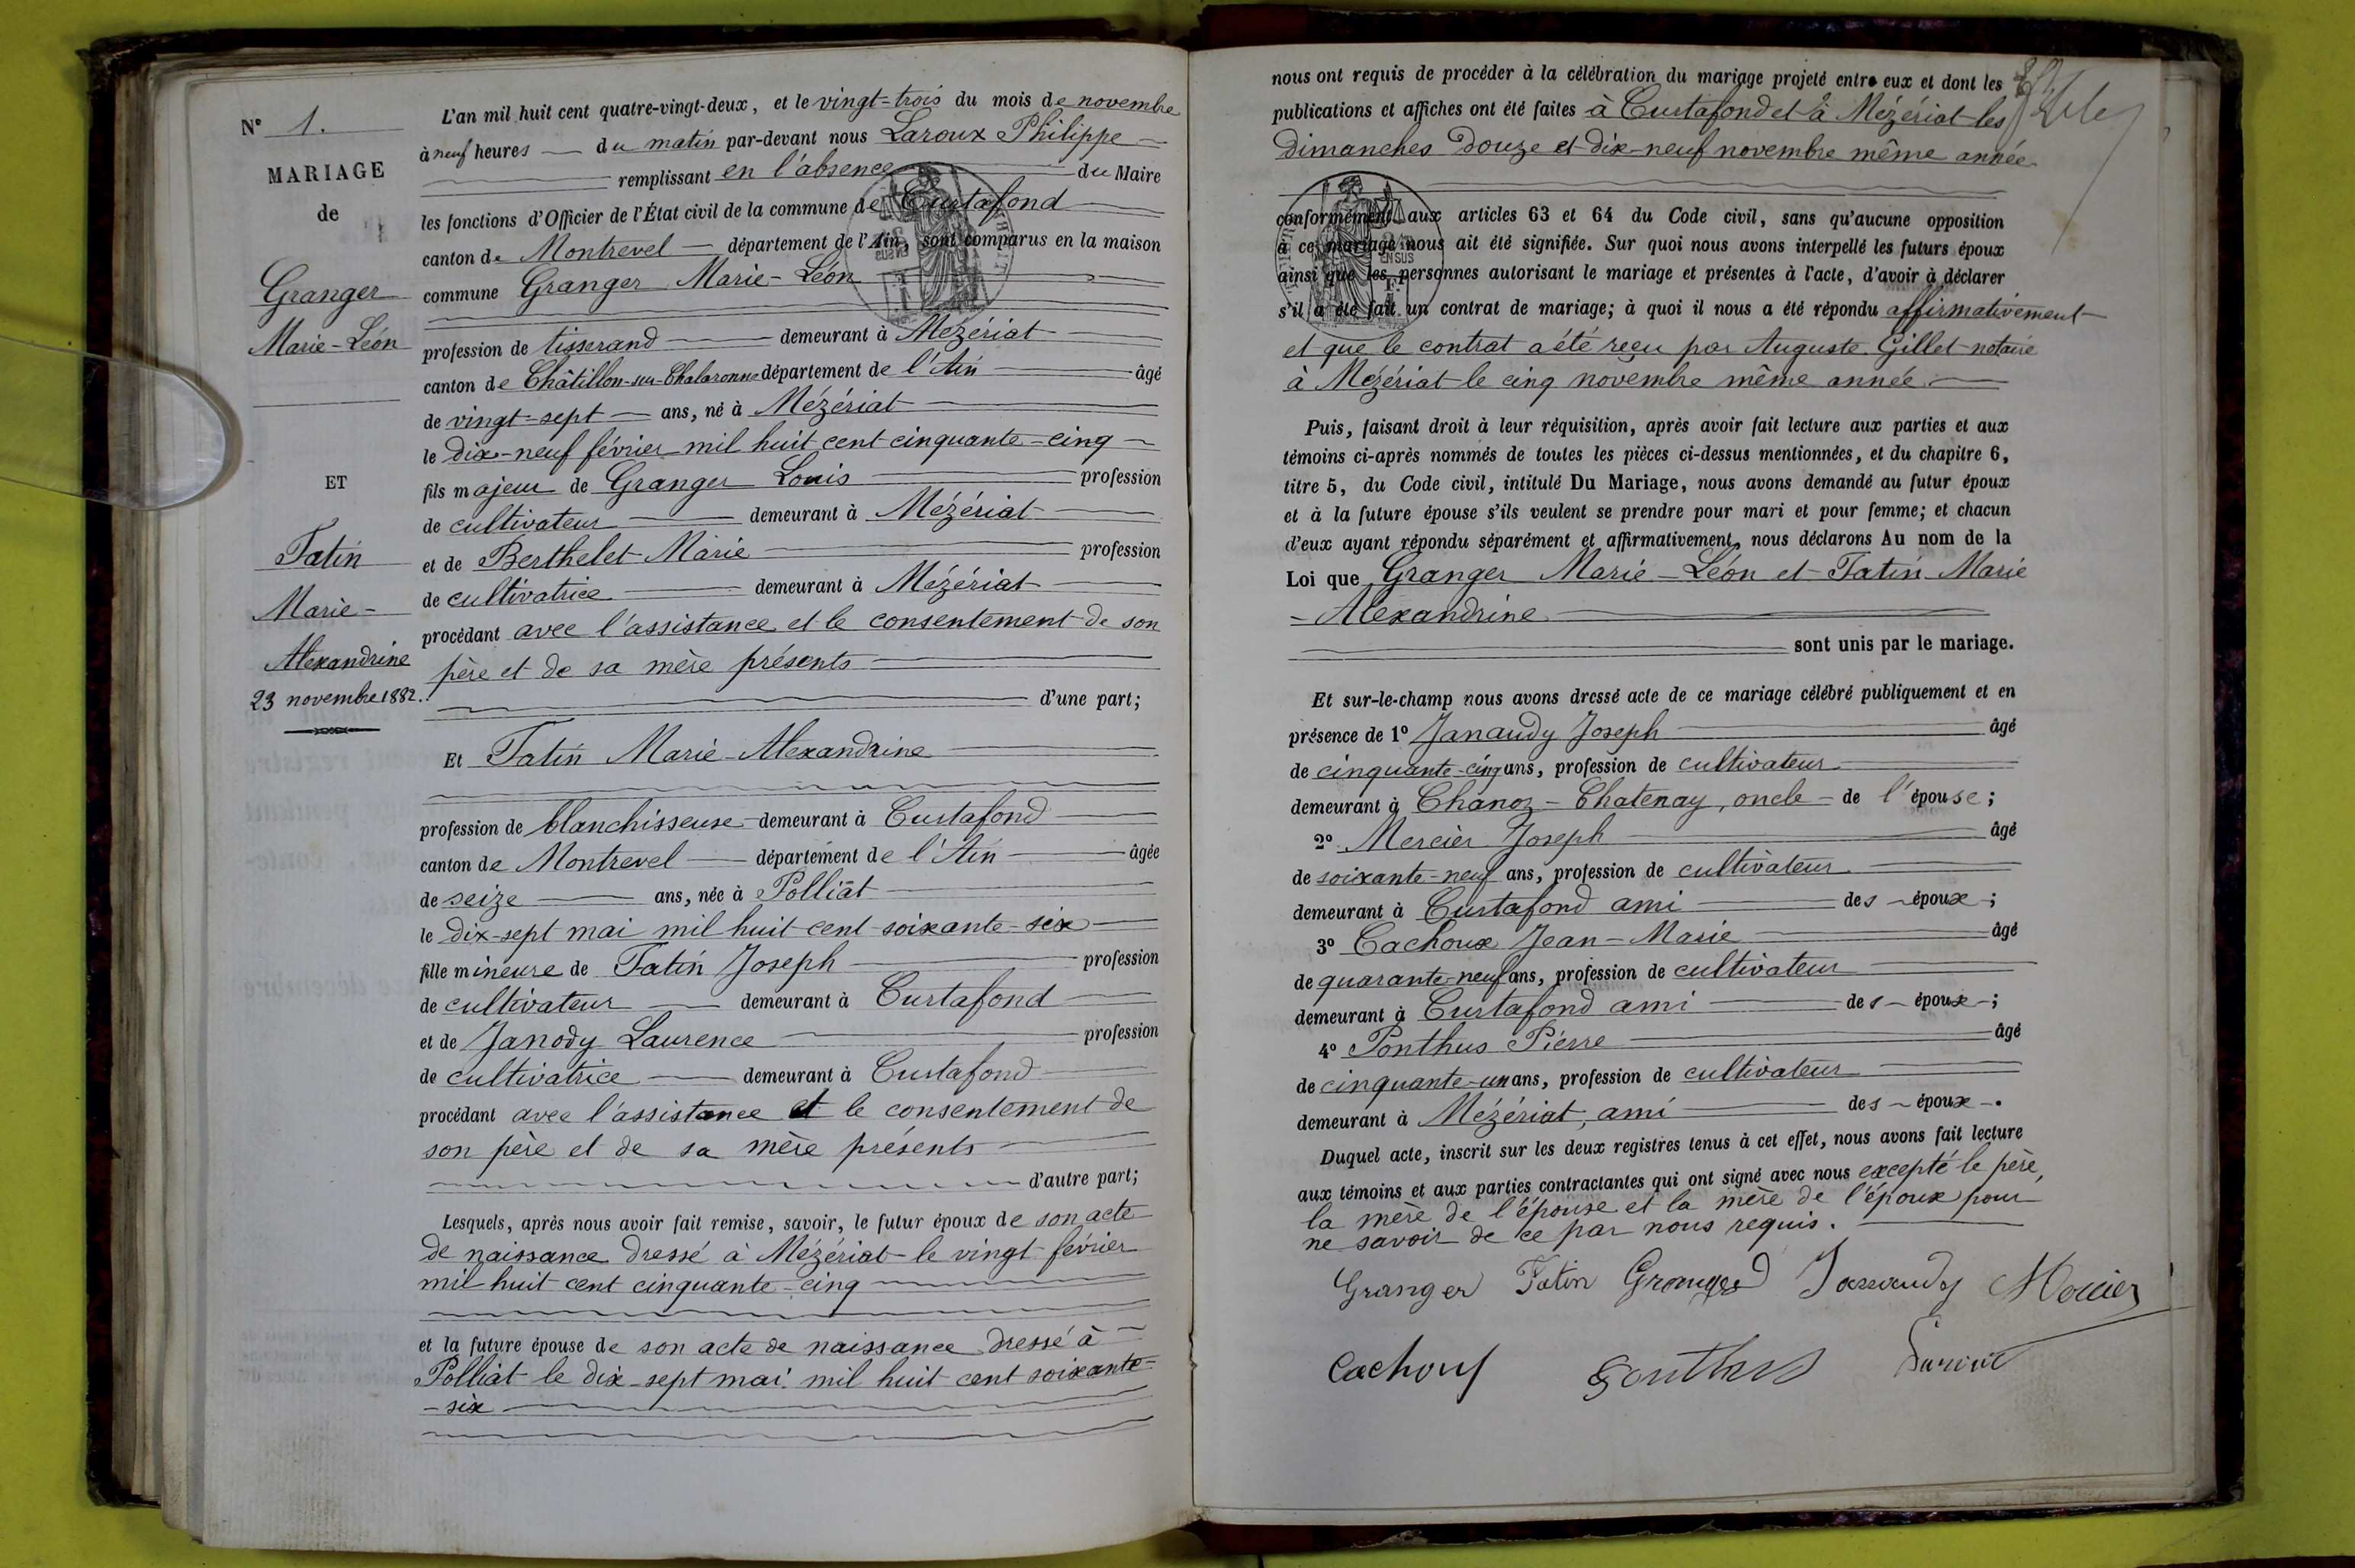 N° 1.
MARIAGE
de
Granger
Marie-Léon
ET
Tatin
Marie-
Alexandrine
23 novembre 1882.
L'an mil huit cent quatre-vingt-deux, et le vingt-trois du mois de novembre
à neuf heures du matin par-devant nous Laroux Philippe
remplissant en l'absence du Maire
les fonctions d'Officier de l'État civil de la commune de Curtafond
canton de Montrevel département de l'Ain, sont comparus en la maison
commune Granger Marie-Léon
profession de tisserand demeurant à Mézériat
canton de Châtillon-sur-Chalaronne département de l'Ain âgé
de vingt-sept ans, né à Mézériat
le dix-neuf février mil huit cent cinquante-cinq
fils majeur de Granger Louis profession
de cultivateur demeurant à Mézériat
et de Berthelet Marie profession
de cultivatrice demeurant à Mézériat
procédant avec l'assistance et le consentement de son
père et de sa mère présents
d'une part;
Et Tatin Marie-Alexandrine
profession de blanchisseuse demeurant à Curtafond
canton de Montrevel département de l'Ain âgée
de seize ans, née à Polliat
le dix-sept mai mil huit cent soixante-six
fille mineure de Tatin Joseph profession
de cultivateur demeurant à Curtafond
et de Janody Laurence profession
de cultivatrice demeurant à Curtafond
procédant avec l'assistance et le consentement de
son père et de sa mère présents
d'autre part;
Lesquels, après nous avoir fait remise, savoir, le futur époux de son acte
de naissance dressé à Mézériat le vingt février
mil huit cent cinquante-cinq
et la future épouse de son acte de naissance dressé à
Polliat le dix-sept mai mil huit cent soixante-
-six
nous ont requis de procéder à la célébration du mariage projeté entre eux et dont les
publications et affiches ont été faites à Curtafond et à Mézériat les
dimanches douze et dix-neuf novembre même année
conformément aux articles 63 et 64 du Code civil, sans qu'aucune opposition
à ce mariage nous ait été signifiée. Sur quoi nous avons interpellé les futurs époux
ainsi que les personnes autorisant le mariage et présentes à l'acte, d'avoir à déclarer
s'il a été fait un contrat de mariage; à quoi il nous a été répondu affirmativement
et que le contrat a été reçu par Auguste Gillet notaire
à Mézériat le cinq novembre même année.
Puis, faisant droit à leur réquisition, après avoir fait lecture aux parties et aux
témoins ci-après nommés de toutes les pièces ci-dessus mentionnées, et du chapitre 6,
titre 5, du Code civil, intitulé Du Mariage, nous avons demandé au futur époux
et à la future épouse s'ils veulent se prendre pour mari et pour femme; et chacun
d'eux ayant répondu séparément et affirmativement, nous déclarons Au nom de la
Loi que Granger Marie-Léon et Tatin Marie
-Alexandrine
sont unis par le mariage.
Et sur-le-champ nous avons dressé acte de ce mariage célébré publiquement et en
présence de 1° Janaudy Joseph âgé
de cinquante-cinq ans, profession de cultivateur
demeurant à Chanoz-Chatenay, oncle de l'épouse;
2° Mercier Joseph âgé
de soixante-neuf ans, profession de cultivateur
demeurant à Curtafond ami des époux;
3° Cachoux Jean-Marie âgé
de quarante-neuf ans, profession de cultivateur
demeurant à Curtafond ami des époux;
4° Ponthus Pierre âgé
de cinquante-un ans, profession de cultivateur
demeurant à Mézériat, ami des époux.
Duquel acte, inscrit sur les deux registres tenus à cet effet, nous avons fait lecture
aux témoins et aux parties contractantes qui ont signé avec nous excepté le père,
la mère de l'épouse et la mère de l'époux pour
ne savoir de ce par nous requis.
Granger Tatin Granger Janaudy Mercier
Cachoux Ponthus